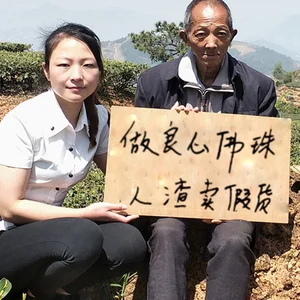 做良心佛珠
人渣卖假货